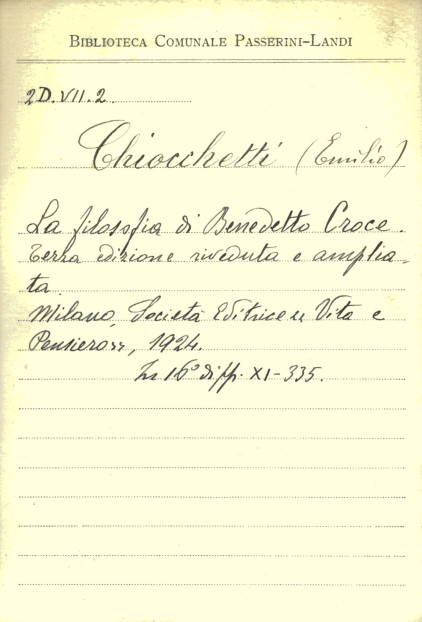 BIBLIOTECA COMUNALE PASSERINI-LANDI
2D.VII.2.
Chiocchetti (Emilio)
La filosofia di Benedetto Croce.
Terza edizione riveduta e amplia-
ta.
Milano, Società Editrice « Vita e
Pensiero », 1924.
In 16° di pp. XI-335.